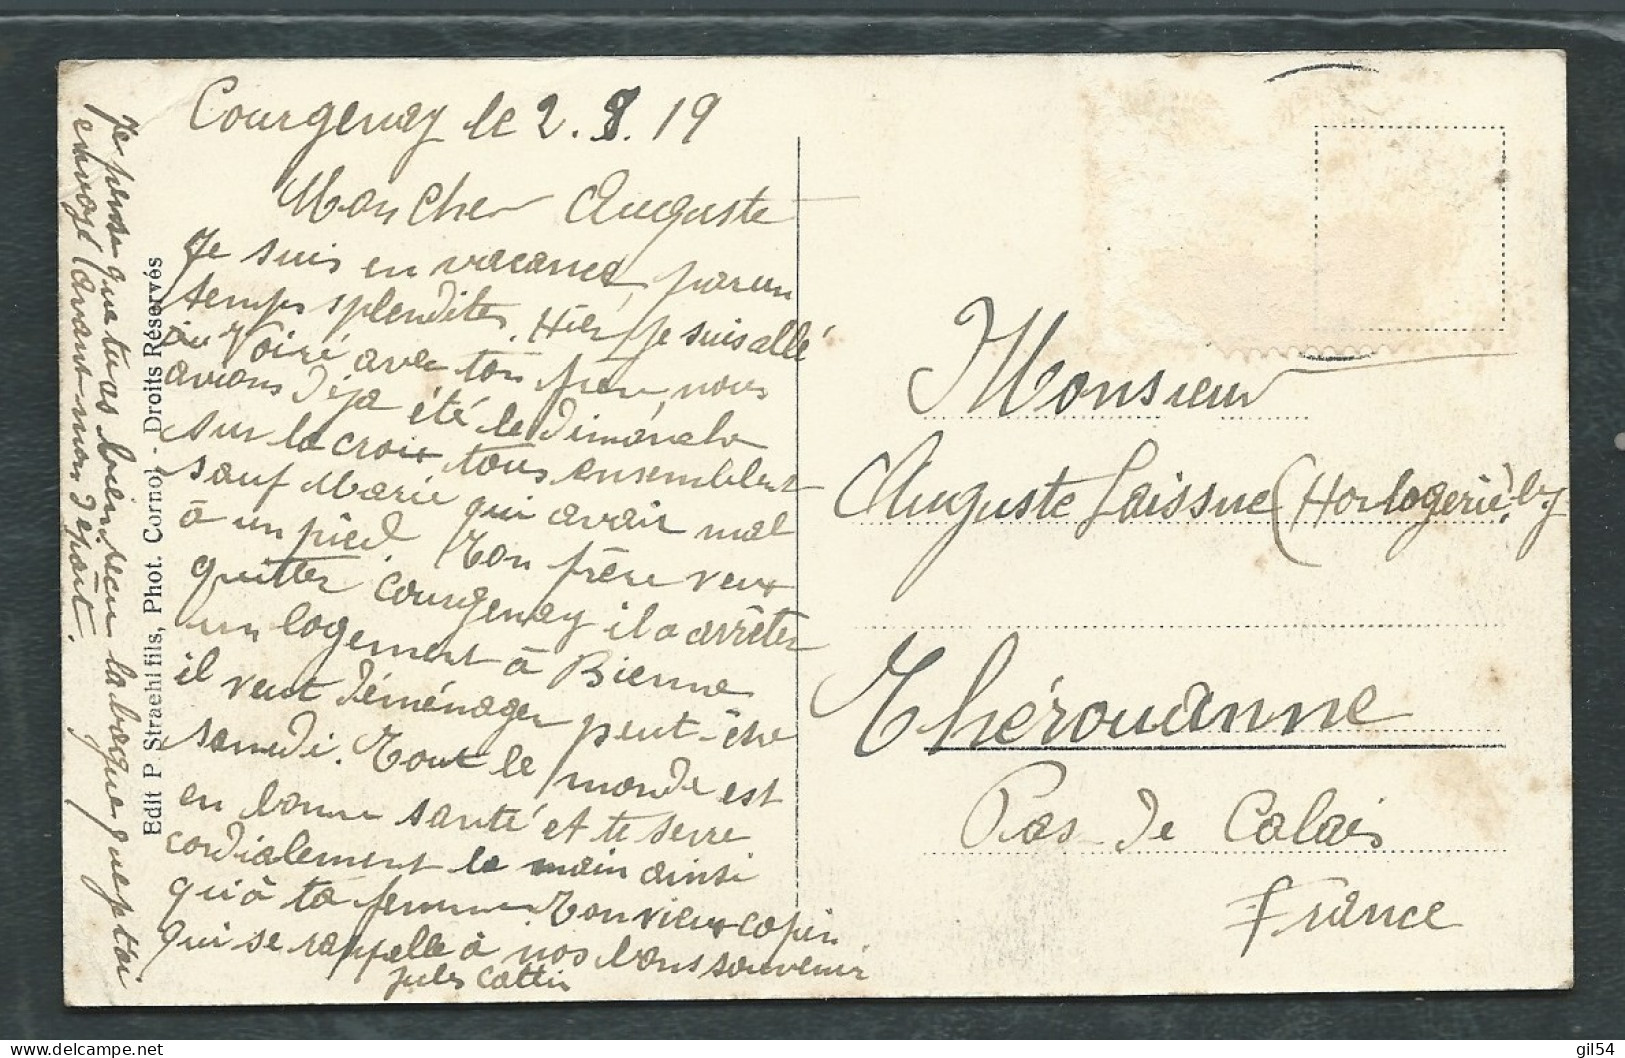 Courgenay le 2.8.19
Mon cher Auguste
Je suis en vacance, par un
temps splendites. Hier je suis allé
au Voiré avec ton frère, nous
avions déja été le dimanche
sur la croix tous ensemblent
sauf Marie qui avait mal
à un pied. Ton frère veux
quitter Courgenay il a arrêter
un logement à Bienne
il veut déménager peut-être
samedi. Tout le monde est
en bonne santé et te serre
cordialement la main ainsi
qu'à ta femme. Ton vieux copin
qui se rappelle à nos bons souvenir
Jules Cattin
Je pense que tu as bien reçu la bague que je t'ai
envoyé (avant mon départ.
Edit P. Straehl fils, Phot. Cornol - Droits Réservés
Monsieur
Auguste Laissue (Horlogerie)
Thérouanne
Pas-de Calais
France
gil54
delcampe.net